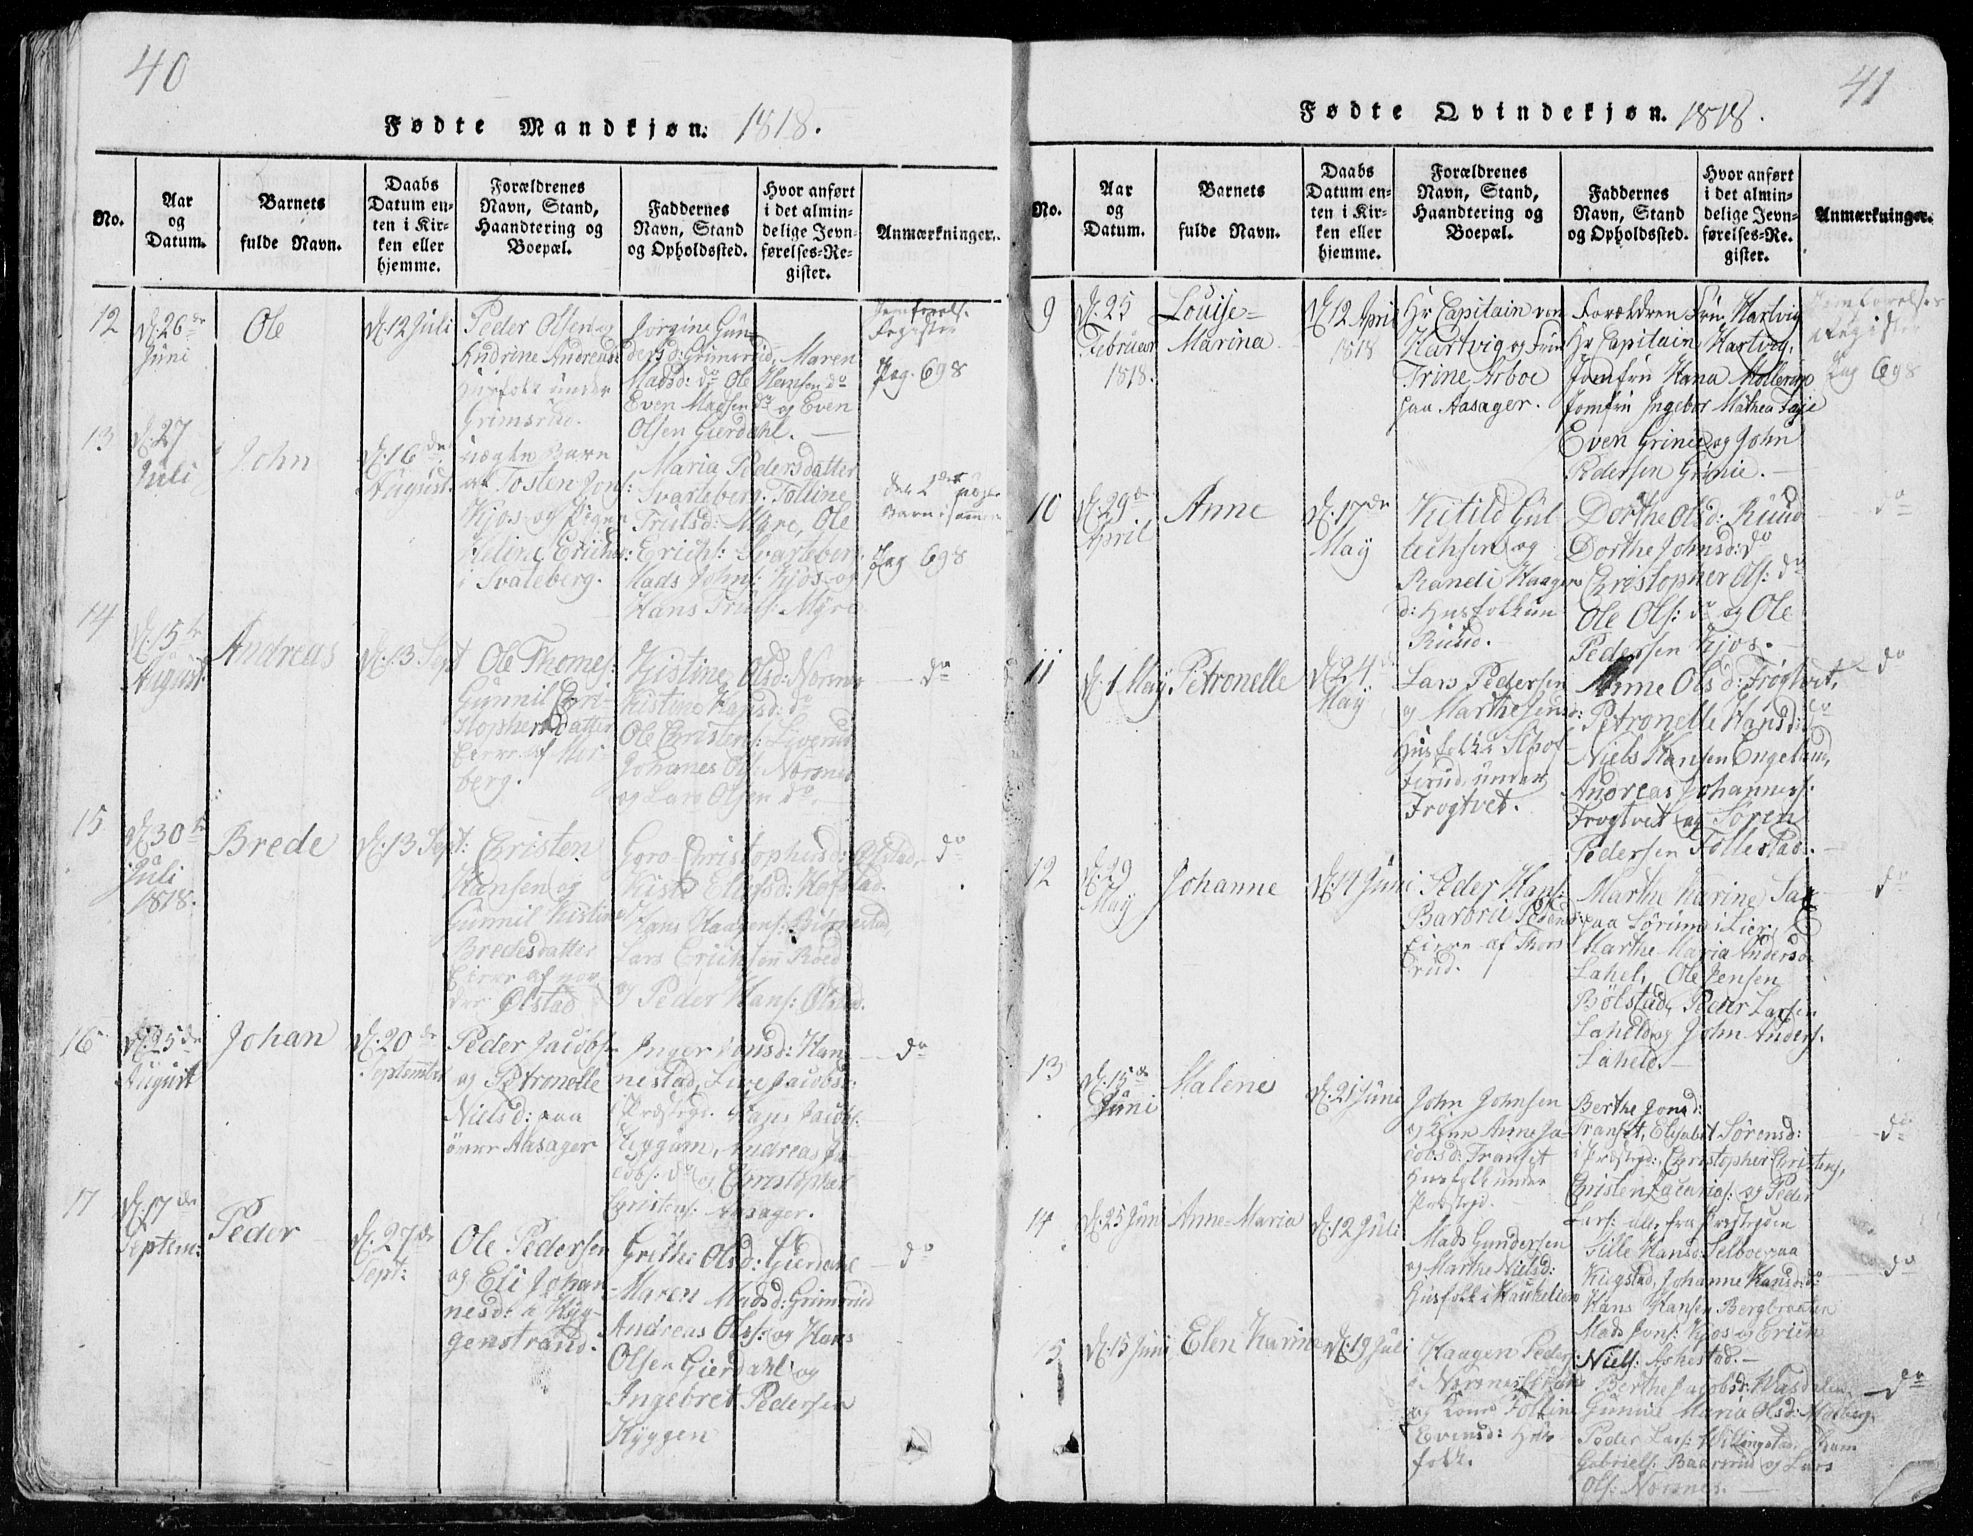 40
Fødte Mandkjøn. 1818.
No.
Aar
og
Datum.
Barnets
fulde Navn.
Daabs
Datum en-
ten i Kir-
ken eller
hjemme.
Forældrenes
Navn, Stand,
Haandtering og
Boepæl.
Faddernes
Navn, Stand
og Opholdssted.
Hvor anført
i det almin-
delige Jevn-
førelses-Re-
gister.
Anmærkninger.
12
26de
Juni
Ole
12 Juli
Peder Olsen og
Andrine Andreasd
Husfolk under
Grimsrud.
Jørgine Gun-
dersd: Grimsrud, Maren
Madsd: do Ole Hansen do
Even Madsen do og Even
Olsen Gierdahl.
Register
Pag. 698
13
27
Juli
John
16de
August.
uægte Barn
af Tosten Jons:
Kjos og Pigen
Eline Erichsd:
i Svaleberg.
Maria Pedersdatter
Svarteberg. Folline
Trulsd: Myre, Ole
Erichs: Svarteberg
Mads Johns: Kjos og
Hans Truls: Myre
Pag 698
14
15de
August
Andreas
13 Sept
Ole Thomes:
Gunnil Chri-
stophersdatter
berg.
Kistine Olsd: Nærsnes
Kistine Hansd: do
Ole Christens:
Johanes Ols: Nærsnes
og Lars Olsen do.
do
15
30te
Juli
1818.
Brede
13 Sept:
Christen
Hansen og
Gunnil Kistine
Bredesdatter
Eiere af nor
dre Ølstad
Goro Christophersd: Ølstad,
Kisti Ellefsd: Hofstad.
Hans Haagens: Biørnestad,
Lars Erichsen Roed
og Peder Hans: Ølstad.
do
16
25de
August
Johan
20de
September
Peder Jacobs:
og Petronelle
Nielsd: paa
øvre Aasager
Inger Jonsd: Han-
nestad, Live Jacobsd:
i Præstegd. Hans Jacobs:
Heggum, Andreas Ja-
cobs: do og Christopher
Christens: Aasager.
do
17
17de
Septem:
Peder
27de
Sept:
Ole Pedersen
og Eli Johan-
nesd: a Kyg-
genstrand.
Grethe Olsd: Gierdahl
Maren Madsd: Grimsrud
Andreas Ols: og Hans
Olsen Gierdahl og
Ingebret Pedersen
Kyggen
do
41
Fødte Qvindekjøn. 1818.
No.
Aar
og
Datum.
Barnets
fulde Navn.
Daabs
Datum en-
ten i Kir-
ken eller
hjemme.
Forældrenes
Navn, Stand,
Haandtering og
Boepæl.
Faddernes
Navn, Stand
og Opholdssted.
Hvor anført
i det almin-
delige Jevn-
førelses-Re-
gister.
Anmærkninger.
9
25
Februar
1818.
Louise=
Marina
12 April
1818
Hr Capitain von
Hartvig og Frue
Trine Arboe
paa Aasager.
Forældren Fru Hartvig
Hr Capitain Hartvig,
Jomfru Hana Møllerop
Jomfru Ingebor Mathea
Even Grine og John
Pedersen Grinie.
Register
Pag 698
10
29de
April
Anne
17de
May
Kitild Gul-
lichsen og
Randi Haagens
d: Husfolk un
Ruud.
Dorthe Olsd: Ruud
Dorthe Johnsd: do
Christopher Ols: do
Ole Ols: do og Ole
Pedersen Kjos.
do
11
1 May
Petronelle
24de
May
Lars Pedersen
og Marthe Jensd:
Husfolk i
under
Frogtvet.
Anne Olsd: Frøgtvet,
Petronelle Hansd: do
Niels Hansen Engelund,
Andreas Johannes:
Frogtvet og Søren
Pedersen Follestad.
do
12
29
May
Johanne
14 Juni
Peder Hans:
Barbra
Eiere af Thors
rud.
Marthe Karine
paa Sørum i Lier,
Marthe Maria Andersd
Lahel, Ole Jensen
Bølstad, Peder Larsen
Laheld og John Anders.
Laheld.
do
13
15de
Juni
Malene
21 Juni
John Johnsen
og Kone Anne Ja-
cobsd: Transet
Husfolk under
Præstegd.
Berthe Jonsd:
Transet, Elisabet Sørensd:
i Præstegd:, Christopher Christens,
Christen Zacarias: og Peder
Lars: alle fra Præstegden
do
14
25 Juni
Anne-Maria
12 Juli
Mads Gundersen
og Marthe Nielsd:
Husfolk i Haukelien
Sille Hansd: Selboe paa
Kiegstad, Johanne Hansd: do
Hans Hansen Bergbraaten
Mads Jons: Kjos og Erich
Niels: Askestad.
do
15
15 Juni
Elen Karine
19 Juli
Haagen Peders:
i Nærsnes
og Kone Folline
Evensd: Hus-
folk.
Berthe Jacobsd:
Gunnie Maria Olsd:
Peder Lars:
Gabriels: Baarsrud og Lars
Ols: Nærsnes.
do